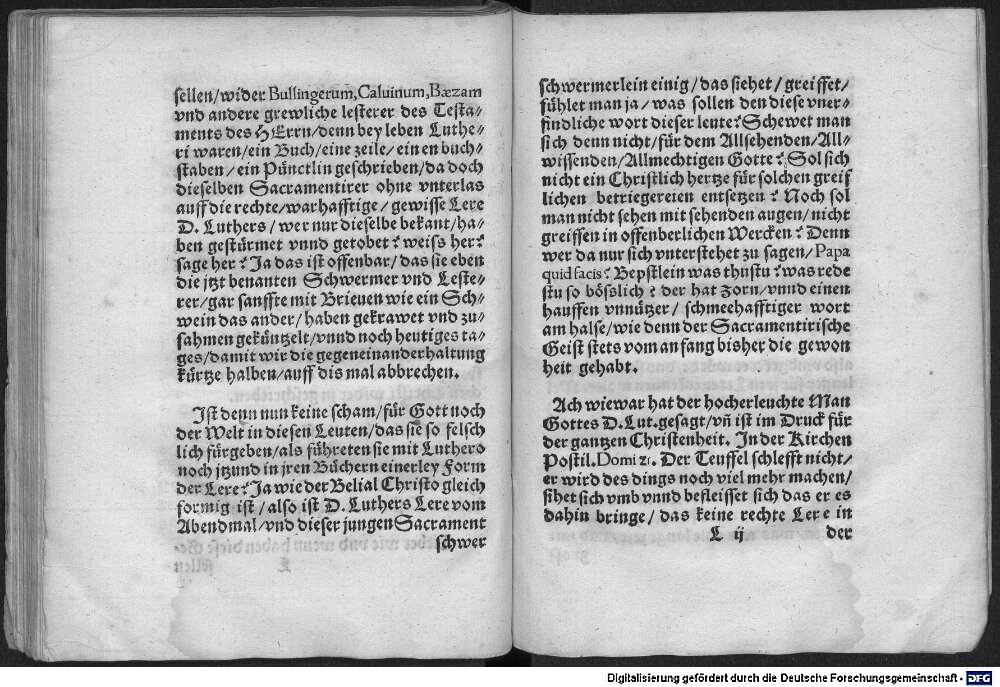 sellen/wider Bullingerum, Caluinum, Bæzam
vnd andere grewliche lesterer des Testa-
ments des HErrn/denn bey leben Luthe-
ri waren/ein Buch/eine zeile/ein en buch-
staben/ein Pünctlin geschrieben/da doch
dieselben Sacramentirer ohne vnterlas
auff die rechte/warhafftige/gewisse Lere
D. Luthers/wer nur dieselbe bekant/ha-
ben gestürmet vnnd getobet? weiss her?
sage her? Ja das ist offenbar/das sie eben
die jtzt benanten Schwermer vnd Leste-
rer/gar sanffte mit Brieuen wie ein Sch-
wein das ander/haben gekrawet vnd zu-
sahmen geküntzelt/vnnd noch heutiges ta-
ges/damit wir die gegeneinanderhaltung
kürtze halben/auff dis mal abbrechen.
Ist denn nun keine scham/für Gott noch
der Welt in diesen Leuten/das sie so felsch
lich fürgeben/als führeten sie mit Luthero
noch jtzund in jren Büchern einerley Form
der Lere? Ja wie der Belial Christo gleich
formig ist/also ist D. Luthers Lere vom
Abendmal/vnd dieser jungen Sacrament
schwer
schwermerlein einig/das siehet/greiffet/
fühlet man ja/was sollen den diese vner-
findliche wort dieser leute? Schewet man
sich denn nicht/für dem Allsehenden/All-
wissenden/Allmechtigen Gotte? Sol sich
nicht ein Christlich hertze für solchen greif
lichen betriegereien entsetzen? Noch sol
man nicht sehen mit sehenden augen/nicht
greiffen in offenberlichen Wercken? Denn
wer da nur sich vnterstehet zu sagen/Papa
quid facis? Bepstlein was thustu? was rede
stu so bösslich? der hat Zorn/vnnd einen
hauffen vnnützer/schmeehafftiger wort
am halse/wie denn der Sacramentirische
Geist stets vom anfang bisher die gewon
heit gehabt.
Ach wie war hat der hocherleuchte Man
Gottes D. Lut. gesagt/vñ ist im Druck für
der gantzen Christenheit. In der Kirchen
Postil. Domi 21. Der Teuffel schlefft nicht/
er wird des dings noch viel mehr machen/
sihet sich vmb vnnd befleisset sich das er es
dahin bringe/das keine rechte Lere in
L ij der
Digitalisierung gefördert durch die Deutsche Forschungsgemeinschaft - DFG